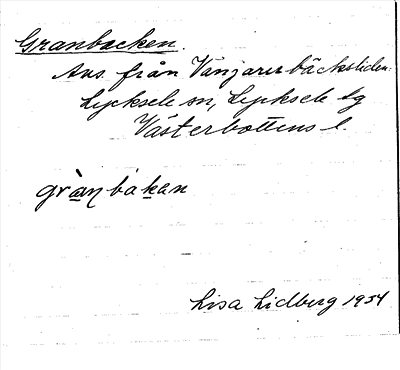 Granbacken.
Avs. från Vänjaurbäcksliden.
Lycksele sn, Lycksele lg
Västerbottens l.
grànbakan
Lisa Lidberg 1954